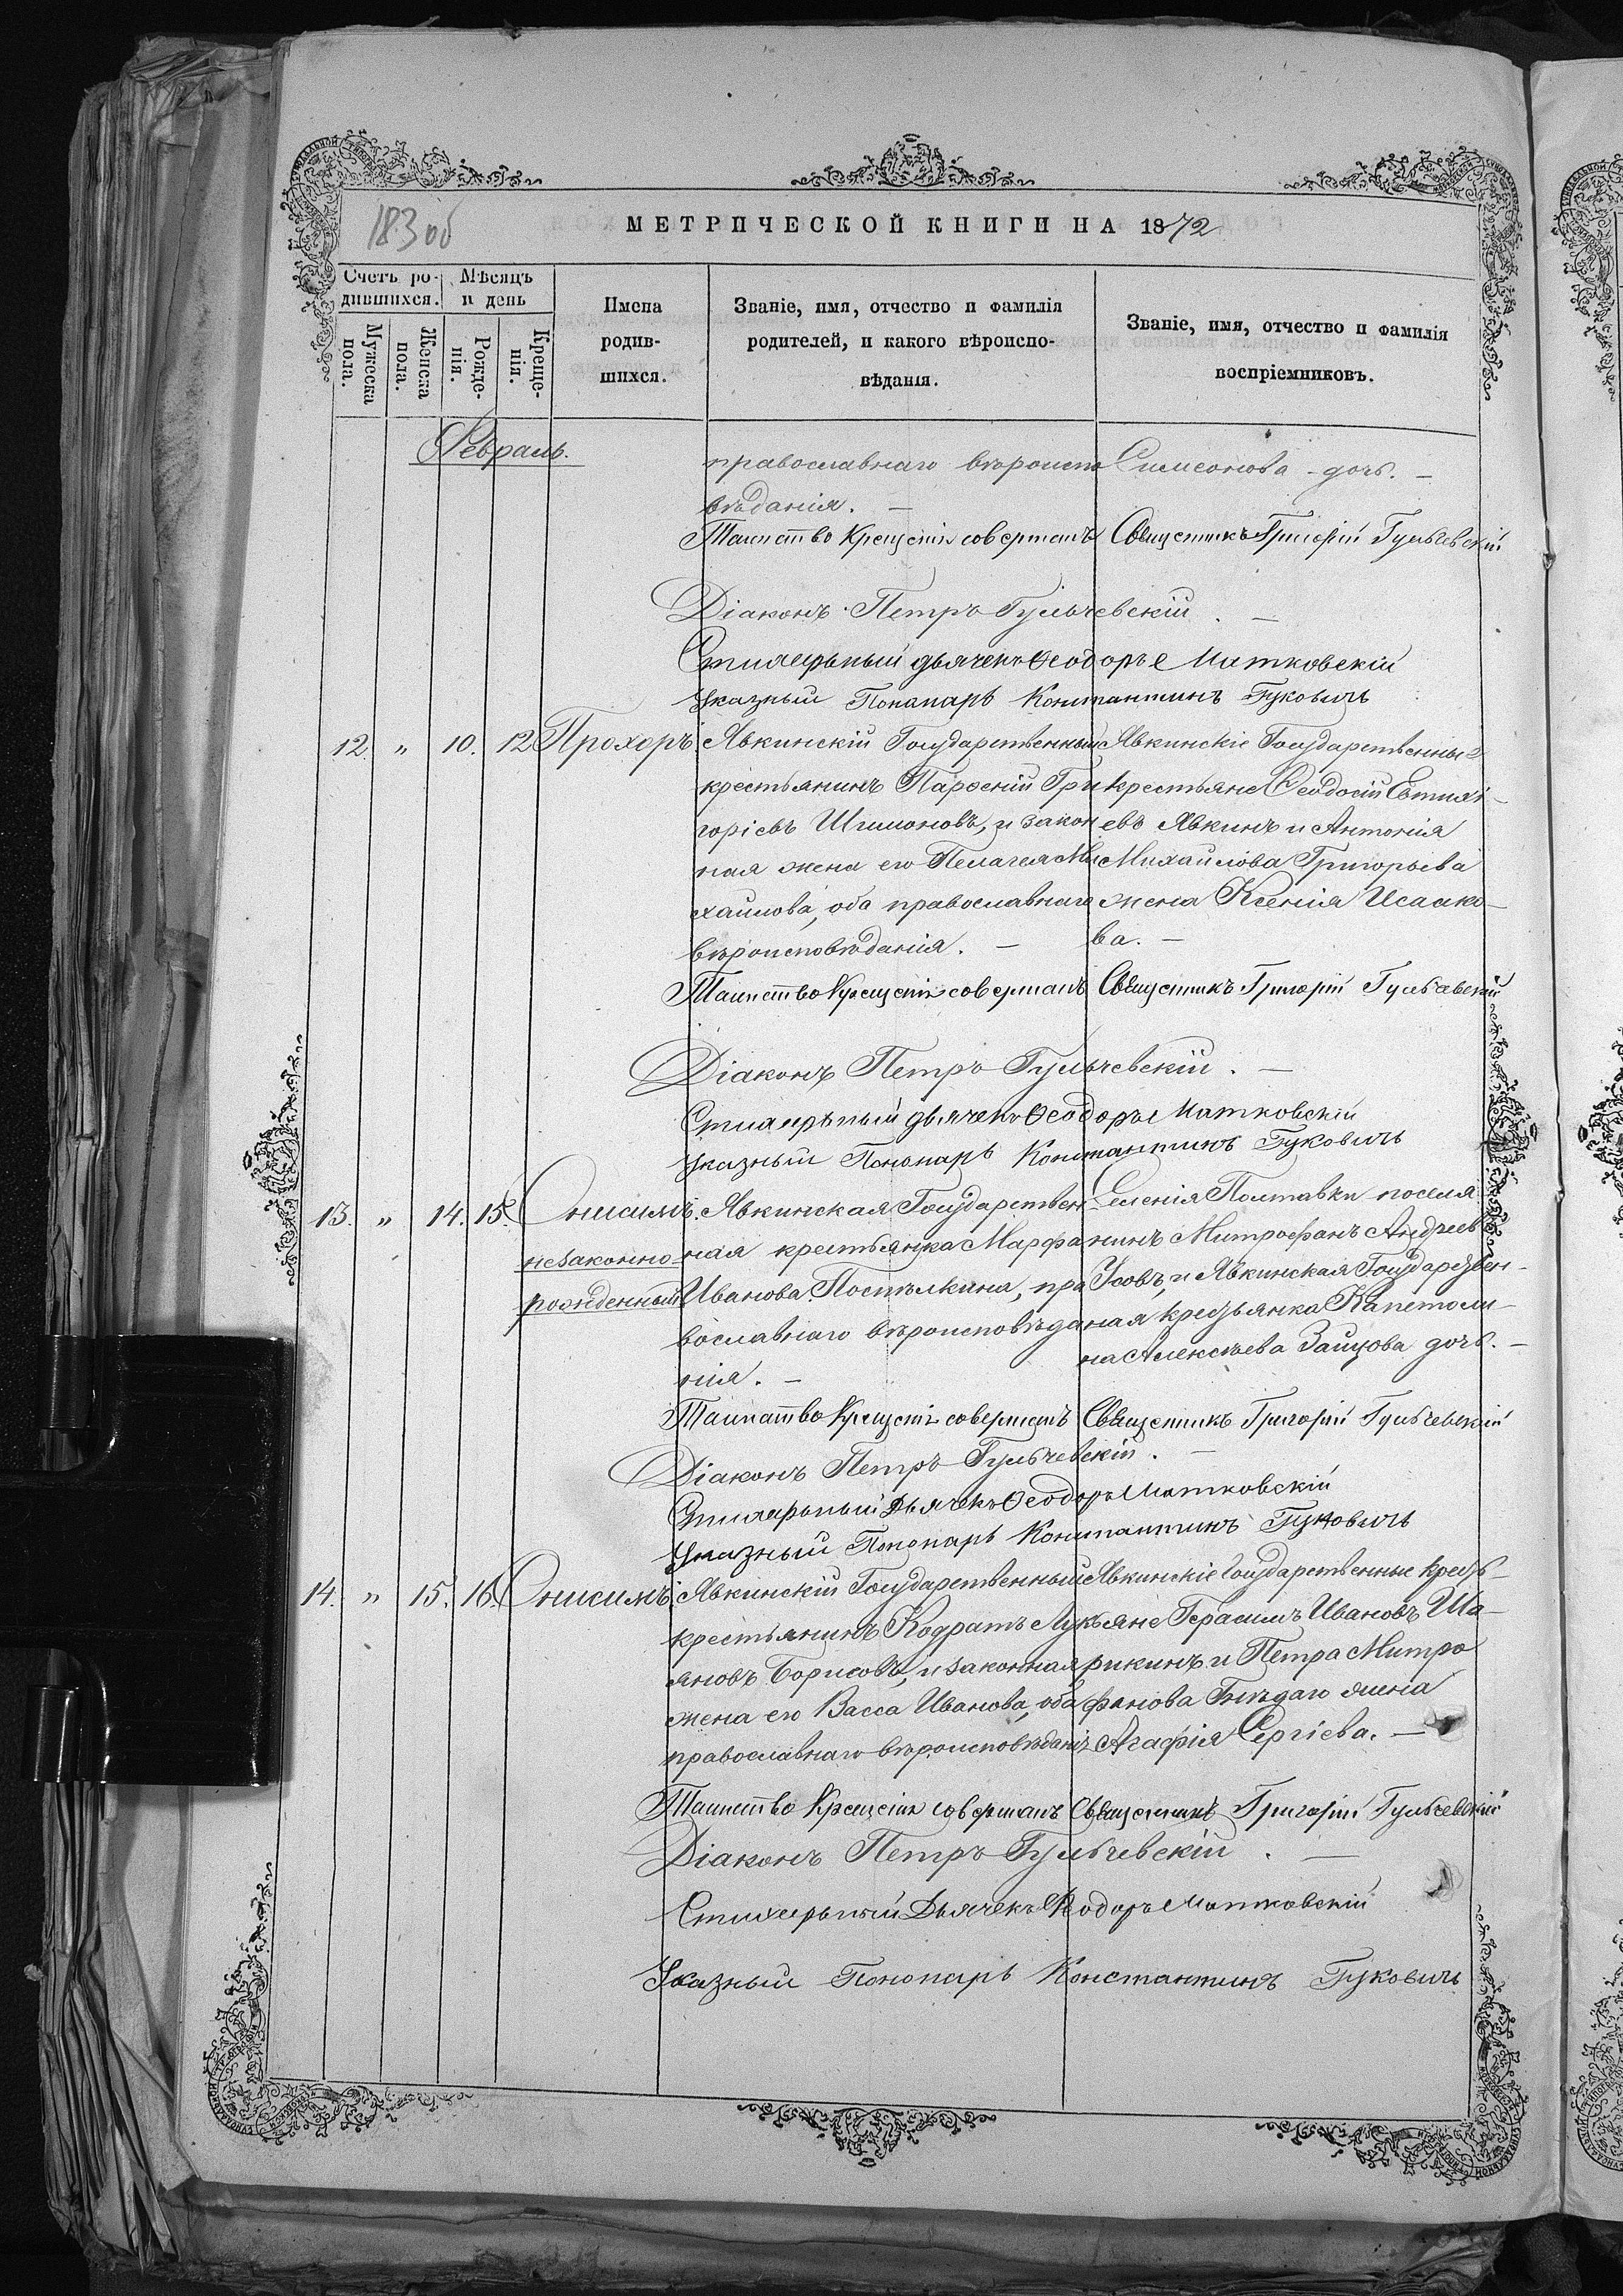 183 об
МЕТРИЧЕСКОЙ КНИГИ НА 1872
Счетъ ро-
дившихся.
Мѣсяцъ
и день
Мужеска
пола.
Женска
пола.
Рожде-
нія.
Креще-
нія.
Имена
родив-
шихся.
Званіе, имя, отчество и фамилія
родителей, и какого вѣроиспо-
вѣданія.
Званіе, имя, отчество и фамилія
воспріемниковъ.
Февраль.
православнаго вѣроиспо
вѣданія. —
Симеонова дочь. —
Таинство Крещенія совершалъ Священникъ Григорій Гульчевскій
Діаконъ Петръ Гульчевскій. —
Стихарный дьячекъ Ѳеодоръ Матковскій
Указный Пономарь Константинъ Гуковичъ
12. „ 10. 12. Прохоръ.
Явкинскій Государственный
крестьянинъ Парѳеній Гри
горіевъ Шимоновъ, и закон
ная жена его Пелагея Ми
хаилова, оба православнаго
вѣроисповѣданія. —
Явкинскіе Государственные
крестьяне Ѳеодосій Евтихі-
евъ Явкинъ и Антонія
Михаилова Григорьева
жена Ксенія Исаако-
ва. —
Таинство Крещенія совершалъ Священникъ Григорій Гульчевскій
Діаконъ Петръ Гульчевскій. —
Стихарный дьячекъ Ѳеодоръ Матковскій
Указный Пономарь Константинъ Гуковичъ
13. „ 14. 15. Онисимъ.
незаконно-
рожденный
Явкинская Государствен
ная крестьянка Марфа
Иванова Постѣлкина, пра
вославнаго вѣроисповѣда
нія. —
Селенія Полтавки поселя
нинъ Митрофанъ Андреевъ
Усовъ, и Явкинская Государствен-
ная крестьянка Капетоли-
на Алексѣева Зайцова дочь. —
Таинство Крещенія совершалъ Священникъ Григорій Гульчевскій
Діаконъ Петръ Гульчевскій. —
Стихарный Дьячекъ Ѳеодоръ Матковскій
Указный Пономарь Константинъ Гуковичъ
14. „ 15. 16. Онисимъ.
Явкинскій Государственный
крестьянинъ Кодратъ Лукь
яновъ Борисовъ, и законная
жена его Васса Иванова, оба
православнаго вѣроисповѣданія
Явкинскіе Государственные кресть-
яне Герасимъ Ивановъ Ша-
рикинъ и Петра Митро
фанова Гнѣдаго жена
Агафія Сергіева. —
Таинство Крещенія совершалъ Священникъ Григорій Гульчевскій
Діаконъ Петръ Гульчевскій. —
Стихарный Дьячекъ Ѳеодоръ Матковскій
Указный Пономарь Константинъ Гуковичъ